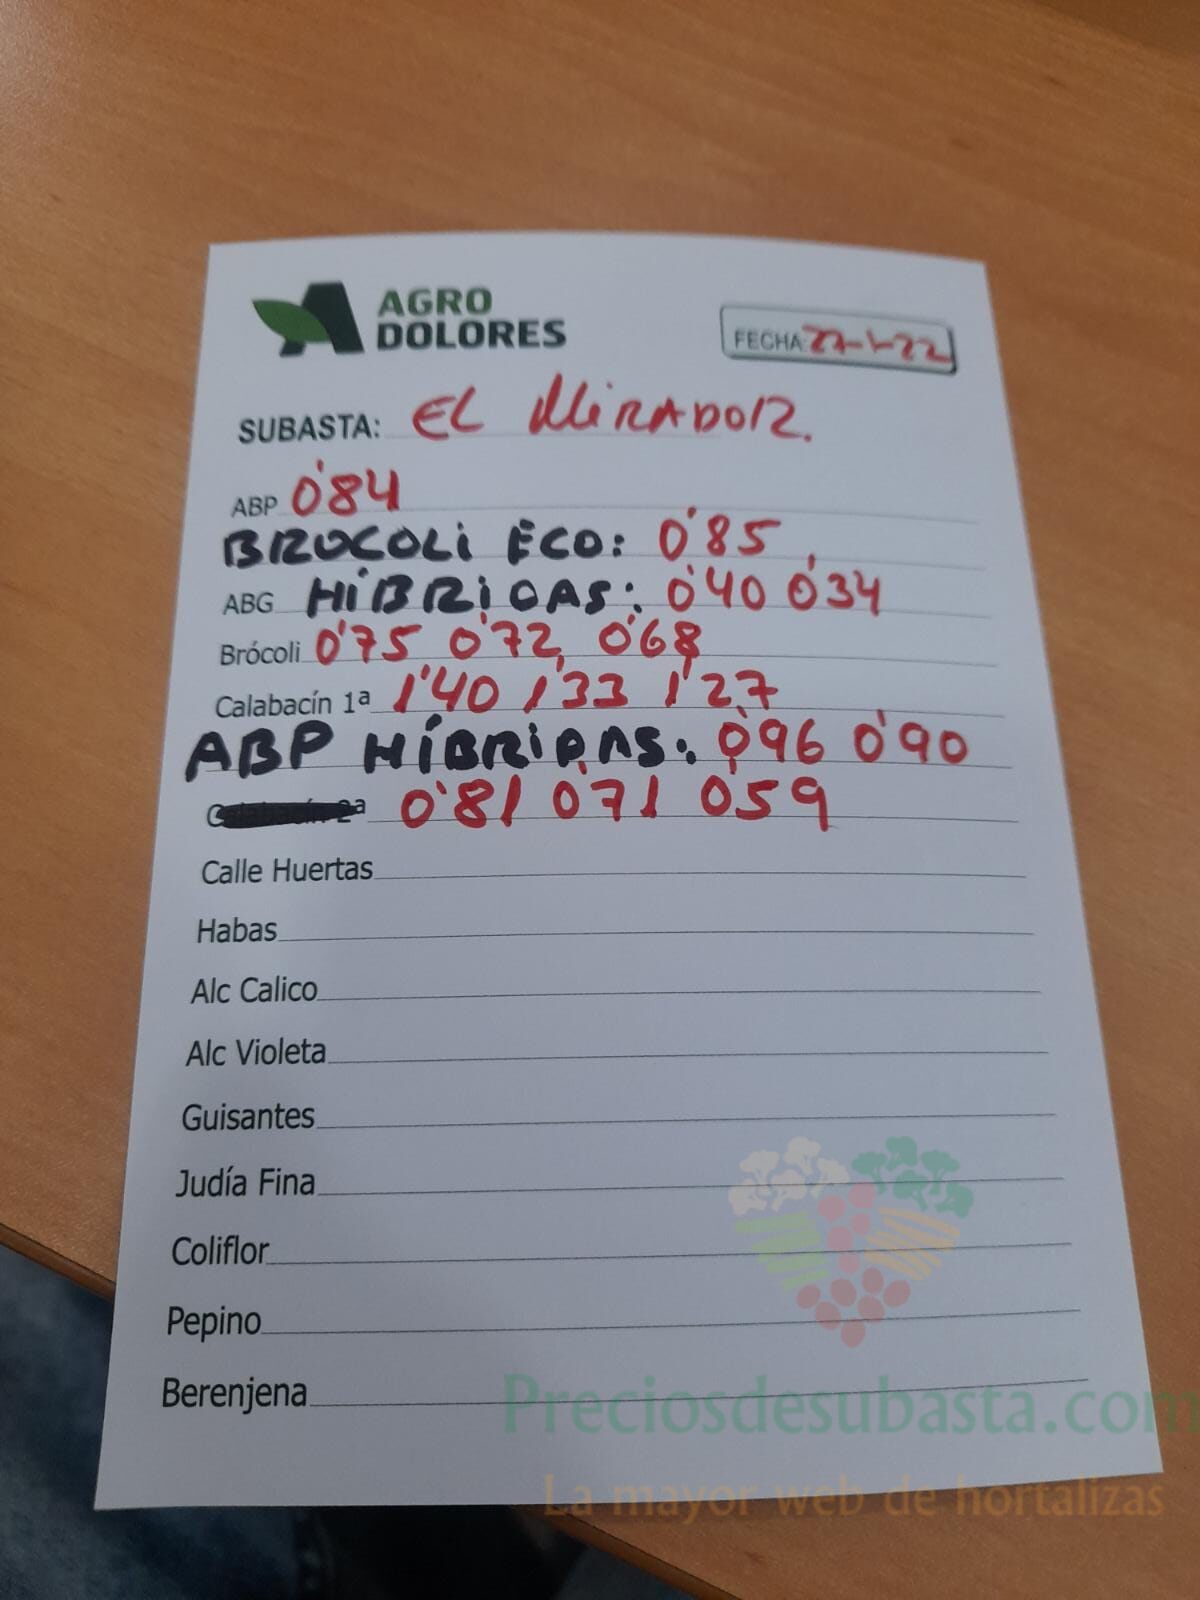 AGRO
DOLORES
FECHA: 27-1-22
SUBASTA: EL MIRADOR.
ABP 0'84
BROCOLI ECO: 0'85
ABG HÍBRIDAS: 0'40 0'34
Brócoli 0'75 0'72 0'68
Calabacín 1ª 1'40 1'33 1'27
ABP HÍBRIDAS: 0'96 0'90
2ª 0'81 0'71 0'59
Calle Huertas
Habas
Alc Calico
Alc Violeta
Guisantes
Judía Fina
Coliflor
Pepino
Berenjena
Preciosdesubasta.com
La mayor web de hortalizas